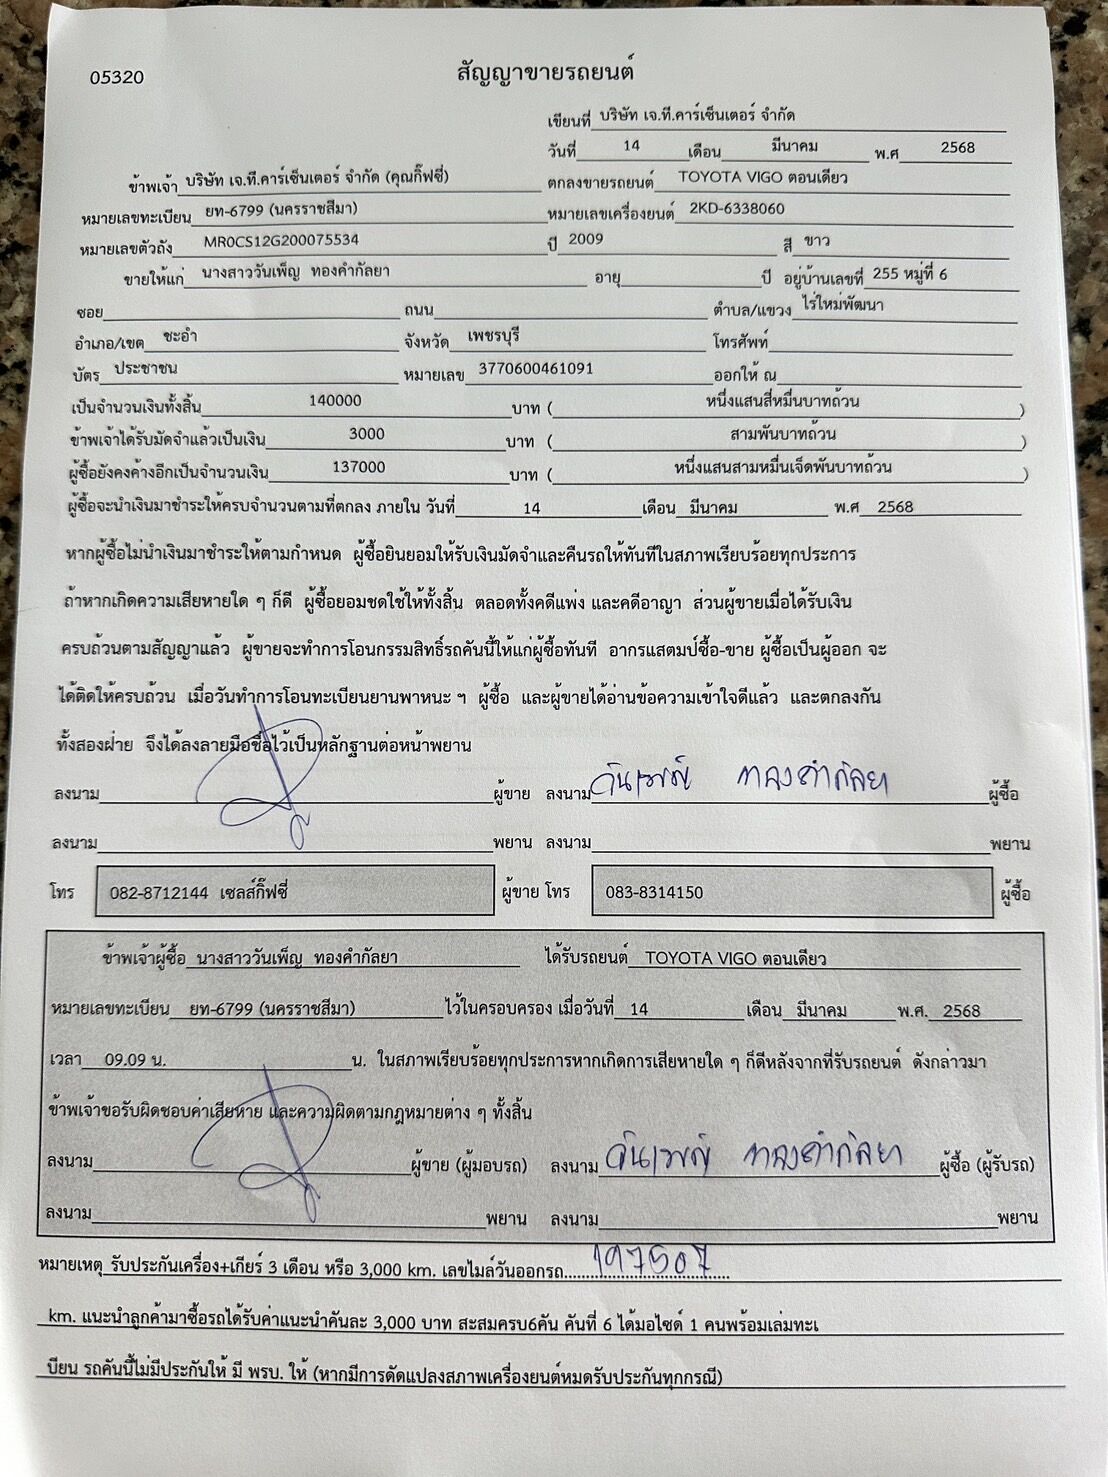 05320
สัญญาขายรถยนต์
เขียนที่ บริษัท เจ.ที.คาร์เซ็นเตอร์ จำกัด
วันที่ 14 เดือน มีนาคม พ.ศ 2568
ข้าพเจ้า บริษัท เจ.ที.คาร์เซ็นเตอร์ จำกัด (คุณกิ๊ฟซี่) ตกลงขายรถยนต์ TOYOTA VIGO ตอนเดียว
หมายเลขทะเบียน ยท-6799 (นครราชสีมา) หมายเลขเครื่องยนต์ 2KD-6338060
หมายเลขตัวถัง MR0CS12G200075534 ปี 2009 สี ขาว
ขายให้แก่ นางสาววันเพ็ญ ทองคำกัลยา อายุ ปี อยู่บ้านเลขที่ 255 หมู่ที่ 6
ซอย ถนน ตำบล/แขวง ไร่ใหม่พัฒนา
อำเภอ/เขต ชะอำ จังหวัด เพชรบุรี โทรศัพท์
บัตร ประชาชน หมายเลข 3770600461091 ออกให้ ณ
เป็นจำนวนเงินทั้งสิ้น 140000 บาท ( หนึ่งแสนสี่หมื่นบาทถ้วน )
ข้าพเจ้าได้รับมัดจำแล้วเป็นเงิน 3000 บาท ( สามพันบาทถ้วน )
ผู้ซื้อยังคงค้างอีกเป็นจำนวนเงิน 137000 บาท ( หนึ่งแสนสามหมื่นเจ็ดพันบาทถ้วน )
ผู้ซื้อจะนำเงินมาชำระให้ครบจำนวนตามที่ตกลง ภายใน วันที่ 14 เดือน มีนาคม พ.ศ 2568
หากผู้ซื้อไม่นำเงินมาชำระให้ตามกำหนด ผู้ซื้อยินยอมให้รับเงินมัดจำและคืนรถให้ทันทีในสภาพเรียบร้อยทุกประการ
ถ้าหากเกิดความเสียหายใด ๆ ก็ดี ผู้ซื้อยอมชดใช้ให้ทั้งสิ้น ตลอดทั้งคดีแพ่ง และคดีอาญา ส่วนผู้ขายเมื่อได้รับเงิน
ครบถ้วนตามสัญญาแล้ว ผู้ขายจะทำการโอนกรรมสิทธิ์รถคันนี้ให้แก่ผู้ซื้อทันที อากรแสตมป์ซื้อ-ขาย ผู้ซื้อเป็นผู้ออก จะ
ได้ติดให้ครบถ้วน เมื่อวันทำการโอนทะเบียนยานพาหนะ ฯ ผู้ซื้อ และผู้ขายได้อ่านข้อความเข้าใจดีแล้ว และตกลงกัน
ทั้งสองฝ่าย จึงได้ลงลายมือชื่อไว้เป็นหลักฐานต่อหน้าพยาน
ลงนาม ผู้ขาย ลงนาม วันเพ็ญ ทองคำกัลยา ผู้ซื้อ
ลงนาม พยาน ลงนาม พยาน
โทร 082-8712144 เซลส์กิ๊ฟซี่ ผู้ขาย โทร 083-8314150 ผู้ซื้อ
ข้าพเจ้าผู้ซื้อ นางสาววันเพ็ญ ทองคำกัลยา ได้รับรถยนต์ TOYOTA VIGO ตอนเดียว
หมายเลขทะเบียน ยท-6799 (นครราชสีมา) ไว้ในครอบครอง เมื่อวันที่ 14 เดือน มีนาคม พ.ศ. 2568
เวลา 09.09 น. น. ในสภาพเรียบร้อยทุกประการหากเกิดการเสียหายใด ๆ ก็ดีหลังจากที่รับรถยนต์ ดังกล่าวมา
ข้าพเจ้าขอรับผิดชอบค่าเสียหาย และความผิดตามกฎหมายต่าง ๆ ทั้งสิ้น
ลงนาม ผู้ขาย (ผู้มอบรถ) ลงนาม วันเพ็ญ ทองคำกัลยา ผู้ซื้อ (ผู้รับรถ)
ลงนาม พยาน ลงนาม พยาน
หมายเหตุ รับประกันเครื่อง+เกียร์ 3 เดือน หรือ 3,000 km. เลขไมล์วันออกรถ 197507
km. แนะนำลูกค้ามาซื้อรถได้รับค่าแนะนำคันละ 3,000 บาท สะสมครบ6คัน คันที่ 6 ได้มอไซด์ 1 คนพร้อมเล่มทะเ
บียน รถคันนี้ไม่มีประกันให้ มี พรบ. ให้ (หากมีการดัดแปลงสภาพเครื่องยนต์หมดรับประกันทุกกรณี)